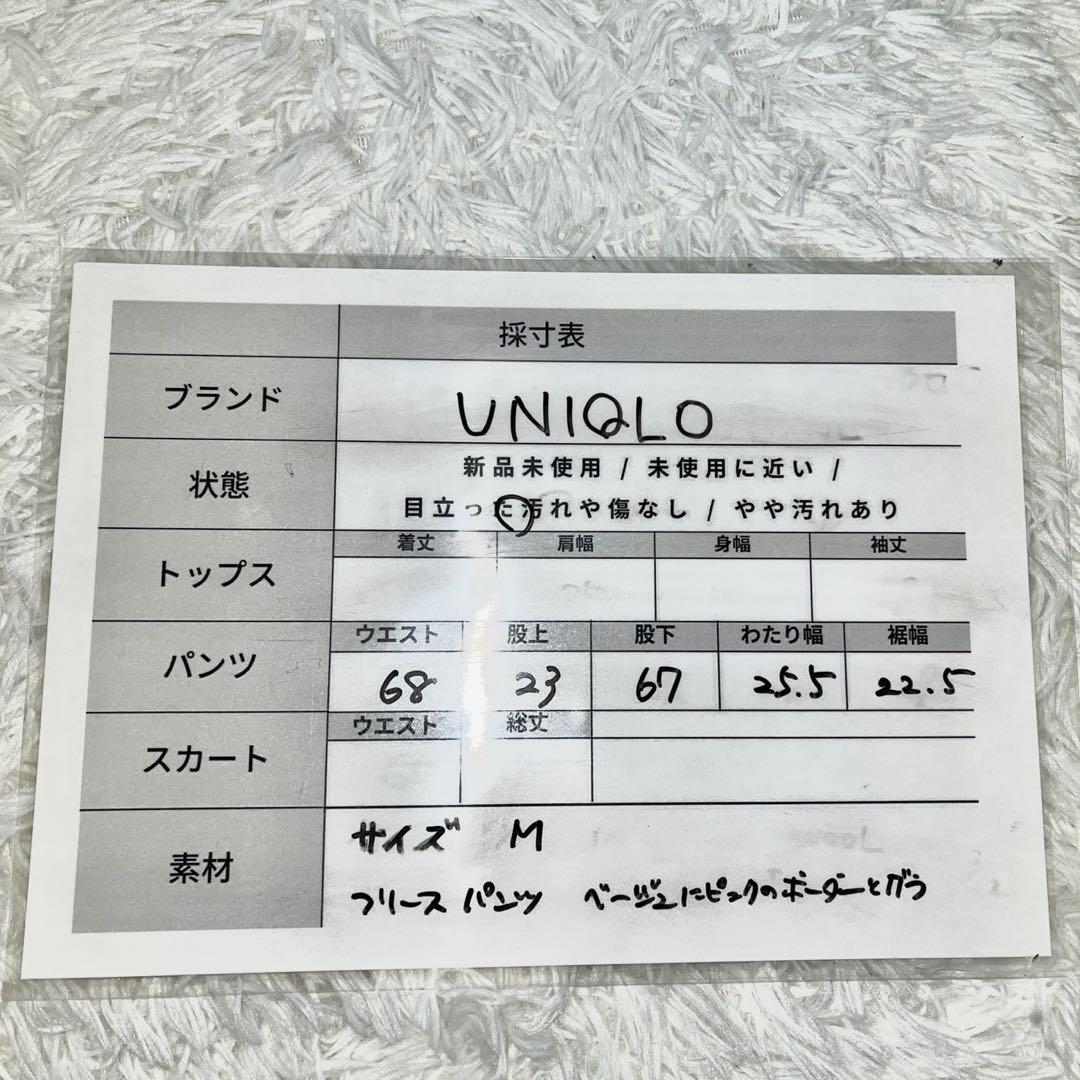 採寸表
ブランド UNIQLO
状態 新品未使用 / 未使用に近い /
目立った汚れや傷なし / やや汚れあり
トップス 着丈 肩幅 身幅 袖丈
パンツ ウエスト 股上 股下 わたり幅 裾幅
68 23 67 25.5 22.5
スカート ウエスト 総丈
素材 サイズ M
フリース パンツ ベージュにピンクのボーダーと